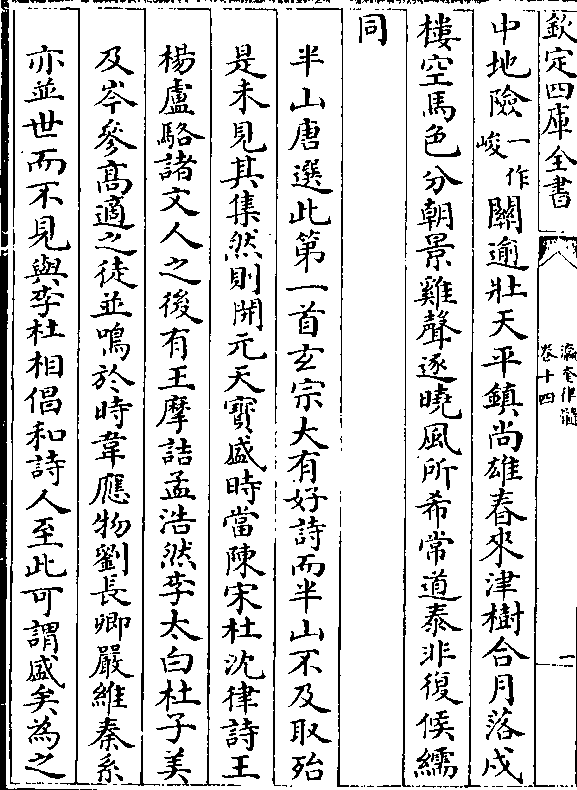 欽定四庫全書
中地險一作峻關逾壯天平鎮尚雄春來津樹合月落戍
樓空馬色分朝景雞聲逐曉風所希常道泰非復候繻
同
半山唐選此第一首玄宗大有好詩而半山不及取殆
是未見其集然則開元天寶盛時當陳宋杜沈律詩王
楊盧駱諸文人之後有王摩詰孟浩然李太白杜子美
及岑參髙適之徒並鳴於時韋應物劉長卿嚴維秦系
亦並世而不見與李杜相倡和詩人至此可謂盛矣為之
瀛奎律髓
卷十四
一